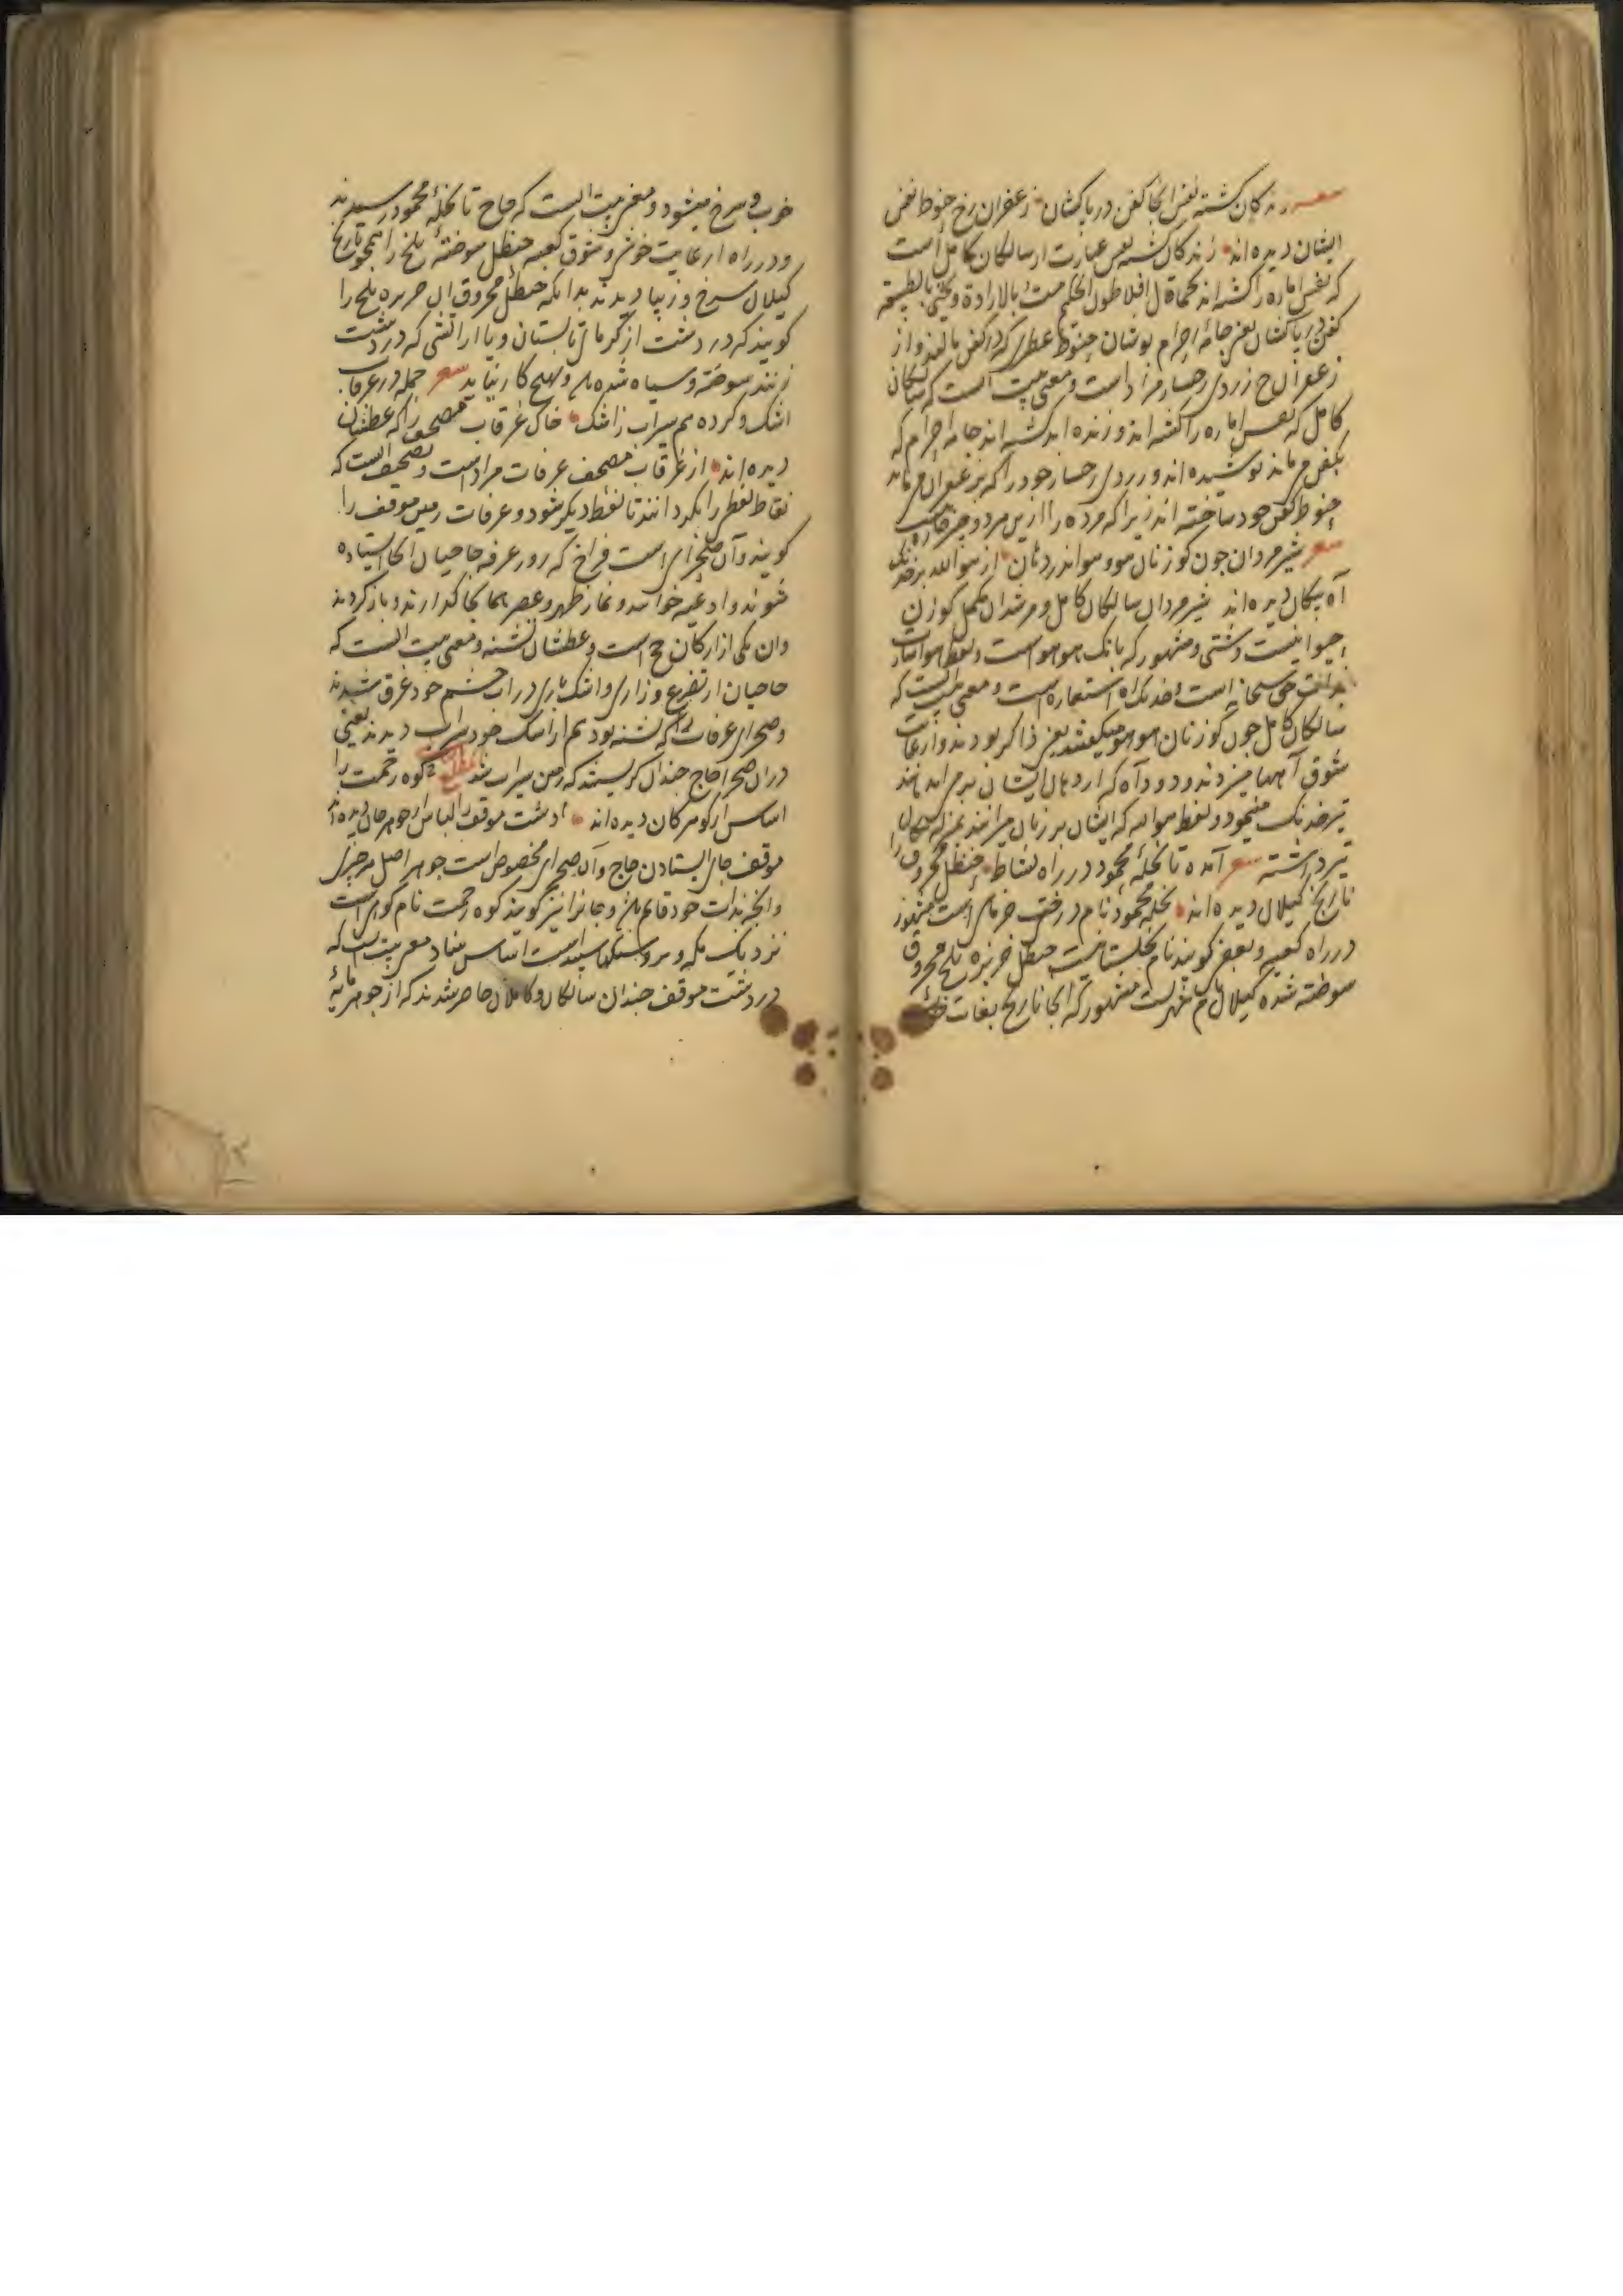 شعر زندکان کشته نفس انجا کفن در با کشان زعفران رخ حنوط نفس
ایشان دیده اند زندکان کشته نفس عبارت از سالکان کامل است
که نفس اماره را کشته اند کما قال افلاطون الحکیم مت بالارادة وتحیی بالطبیعة
کفن در با کشان یعنی جامه احرام پوشان حنوط عطری که در کفن مالند و از
زعفران رخ زردی رخسار مراد است و معنی بیت آنست که سالکان
کامل که نفس اماره را کشته اند و زنده اند کشته اند جامه احرام که
بکفن می ماند پوشیده اند و زردی رخسار خود را که بزعفران می ماند
حنوط کفن خود ساخته اند زیرا که مرده را ازین مردو چیز
شعر شیر مردان چون کوزنان هو هو اندر دهان از هو الله بر خدنک
آه پیکان دیده اند شیر مردان سالکان کامل و مرشدان مکمل کوزن
حیوانیست دشتی و مشهور که بانک هو هو است و لفظ هو اشارت
بذات حق سبحانه است و خدنک آه استعاره است و معنی بیت آنست که
سالکان کامل چون کوزنان هو هو میکفتند یعنی ذاکر بودند و از غایت
شوق آهها میزدند و دود آه که از دهان ایشان بر می آمد مانند
تیر خدنک مینمود و لفظ هو الله که ایشان بر زبان میراندند بمنزله پیکان
تیر داشته شعر آمده تا نخله محمود در راه نشاط حنظل محروق را
نارنج کیلان دیده اند نخله محمود نام درخت خرمای است مشهور
در راه کعبه و بعضی کویند نام نخلستانست حنظل خربزه تلخ محروق
سوخته شده کیلان نام شهریست مشهور که انجا نارنج بغایت
خوب و سرخ میشود و معنی بیت آنست که حاج تا نخله محمود رسیدند
و در راه از غایت خوشی و شوق کعبه حنظل سوخته تلخ را همچو نارنج
کیلان سرخ و زیبا دیدند بدانکه حنظل محروق آن خربزه تلخ را
کویند که در دشت از کرمای تابستان و یا از آتشی که در دشت
زنند سوخته و سیاه شده باشد و بهیچ کار نیاید شعر جمله در غرقاب
اشک و کرده هم سیراب از اشک خاک غرقاب مصحف را که عطشان
دیده اند از غرقاب مصحف عرفات مراد است و تصحیف آنست که
نقاط لفظ را بکردانند تا لفظ دیکر شود و عرفات زمین موقف را
کویند و آن صحرای است فراخ که روز عرفه حاجیان انجا استاده
شوند و ادعیه خوانند و نماز ظهر و عصر همانجا کذارند و باز کردند
وان یکی از ارکان حج است و عطشان تشنه و معنی بیت آنست که
حاجیان از تضرع و زاری و اشک باری در آب چشم خود غرق شدند
و صحرای عرفات را که تشنه بود هم از اشک خود سیراب دیدند یعنی
در ان صحرا حاج چندان کریستند که زمین سیراب شد کوه رحمت را
اساس از کوهر کان دیده اند دشت موقف را لباس از جوهر جان دیده اند
موقف جای ایستادن حاج و آن صحرای مخصوص است جوهر اصل هر چیزی
و انچه بذات خود قائم باشد و جانرا نیز کویند کوه رحمت نام کوهی است
نزدیک مکه و برو سنکهاست اساس بنیاد معنی بیت آنست که
در دشت موقف چندان سالکان و کاملان حاضر شدند که از جوهر مایه